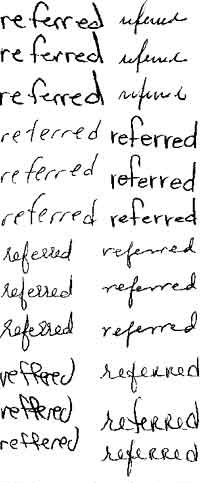 referred referred
referred referred
referred referred
referred referred
referred referred
referred referred
referred referred
referred referred
referred referred
reffered referred
reffered referred
reffered referred